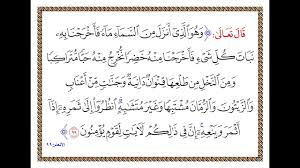 قَالَ تَعَالَى: ﴿وَهُوَ الَّذِي أَنزَلَ مِنَ السَّمَاءِ مَاءً فَأَخْرَجْنَا بِهِ
نَبَاتَ كُلِّ شَيْءٍ فَأَخْرَجْنَا مِنْهُ خَضِرًا نُّخْرِجُ مِنْهُ حَبًّا مُّتَرَاكِبًا
وَمِنَ النَّخْلِ مِن طَلْعِهَا قِنْوَانٌ دَانِيَةٌ وَجَنَّاتٍ مِّنْ أَعْنَابٍ
وَالزَّيْتُونَ وَالرُّمَّانَ مُشْتَبِهًا وَغَيْرَ مُتَشَابِهٍ انظُرُوا إِلَى ثَمَرِهِ إِذَا
أَثْمَرَ وَيَنْعِهِ إِنَّ فِي ذَلِكُمْ لَآيَاتٍ لِّقَوْمٍ يُؤْمِنُونَ ٩٩﴾
الأنعام: ٩٩